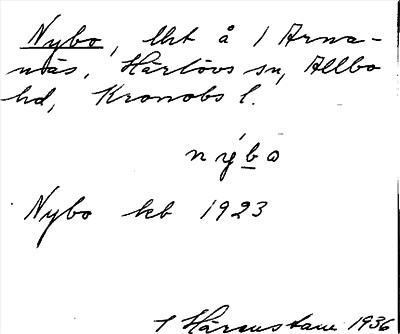 Nybo, lht å 1 Arna-
näs, Härlövs sn, Allbo
hd, Kronobs l.
nýbo
Nybo kb 1923
1936